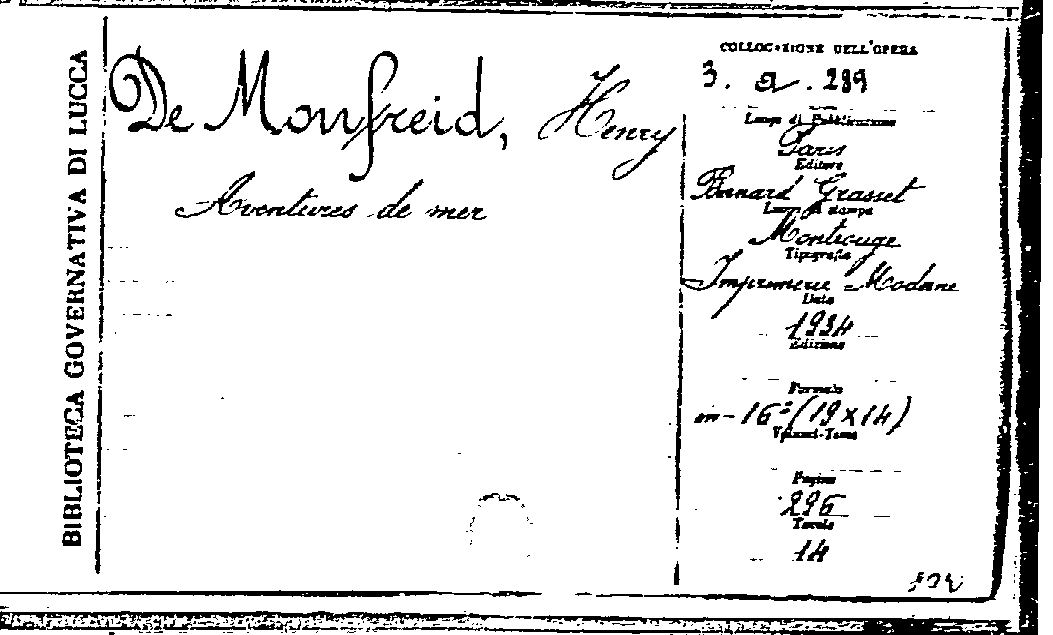 BIBLIOTECA GOVERNATIVA DI LUCCA
De Monfreid, Henry
Aventures de mer
COLLOCAZIONE DELL'OPERA
3. a. 289
Luogo di Pubblicazione
Paris
Editore
Bernard Grasset
Luogo di stampa
Montrouge
Tipografia
Imprimerie Moderne
Data
1934
Edizione
Formato
in-16º (19x14)
Volumi-Tomi
Pagine
296
Tavole
14